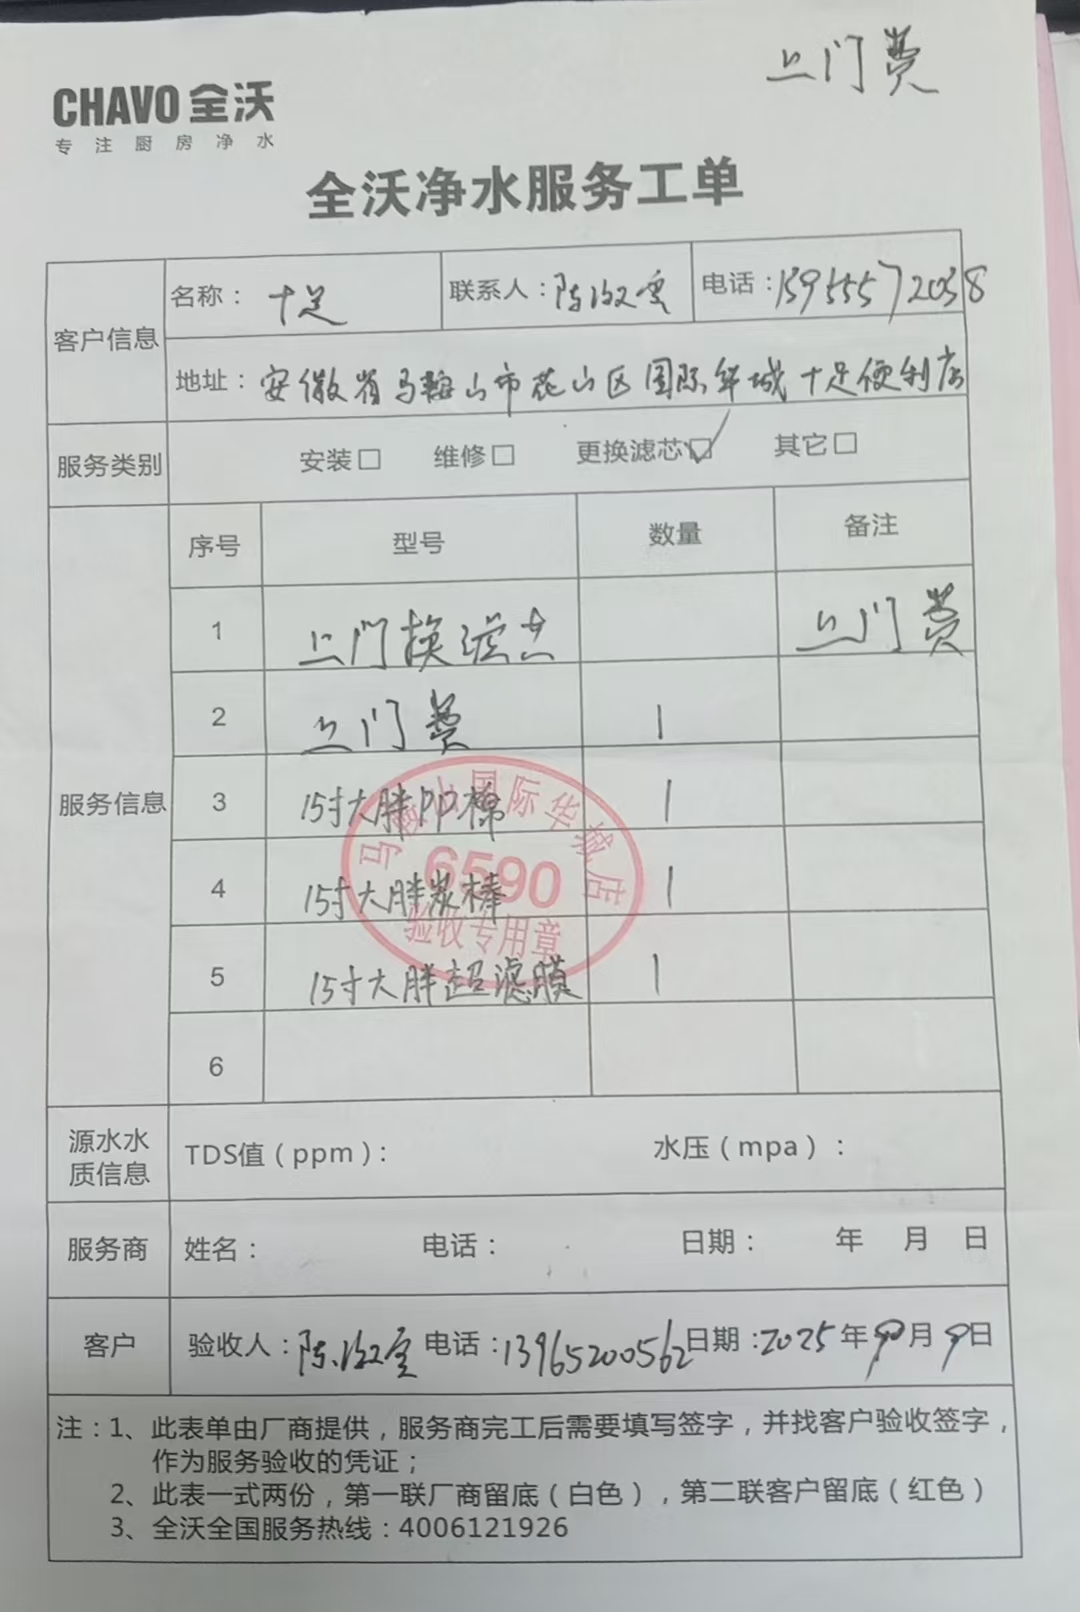 上门费
CHAVO 全沃
专注厨房净水
全沃净水服务工单
客户信息
名称：十足 联系人：陈 电话：15955572038
地址：安徽省马鞍山市花山区国际华城十足便利店
服务类别 安装□ 维修□ 更换滤芯☑ 其它□
服务信息
序号 型号 数量 备注
1 上门换滤芯 上门费
2 上门费 1
3 15寸大胖PP棉 1
4 15寸大胖炭棒 1
5 15寸大胖超滤膜 1
6
马鞍山国际华城店
6590
验收专用章
源水水质信息 TDS值（ppm）： 水压（mpa）：
服务商 姓名： 电话： 日期： 年 月 日
客户 验收人：陈 电话：13965200562 日期：2025年9月9日
注：1、此表单由厂商提供，服务商完工后需要填写签字，并找客户验收签字，
作为服务验收的凭证；
2、此表一式两份，第一联厂商留底（白色），第二联客户留底（红色）
3、全沃全国服务热线：4006121926